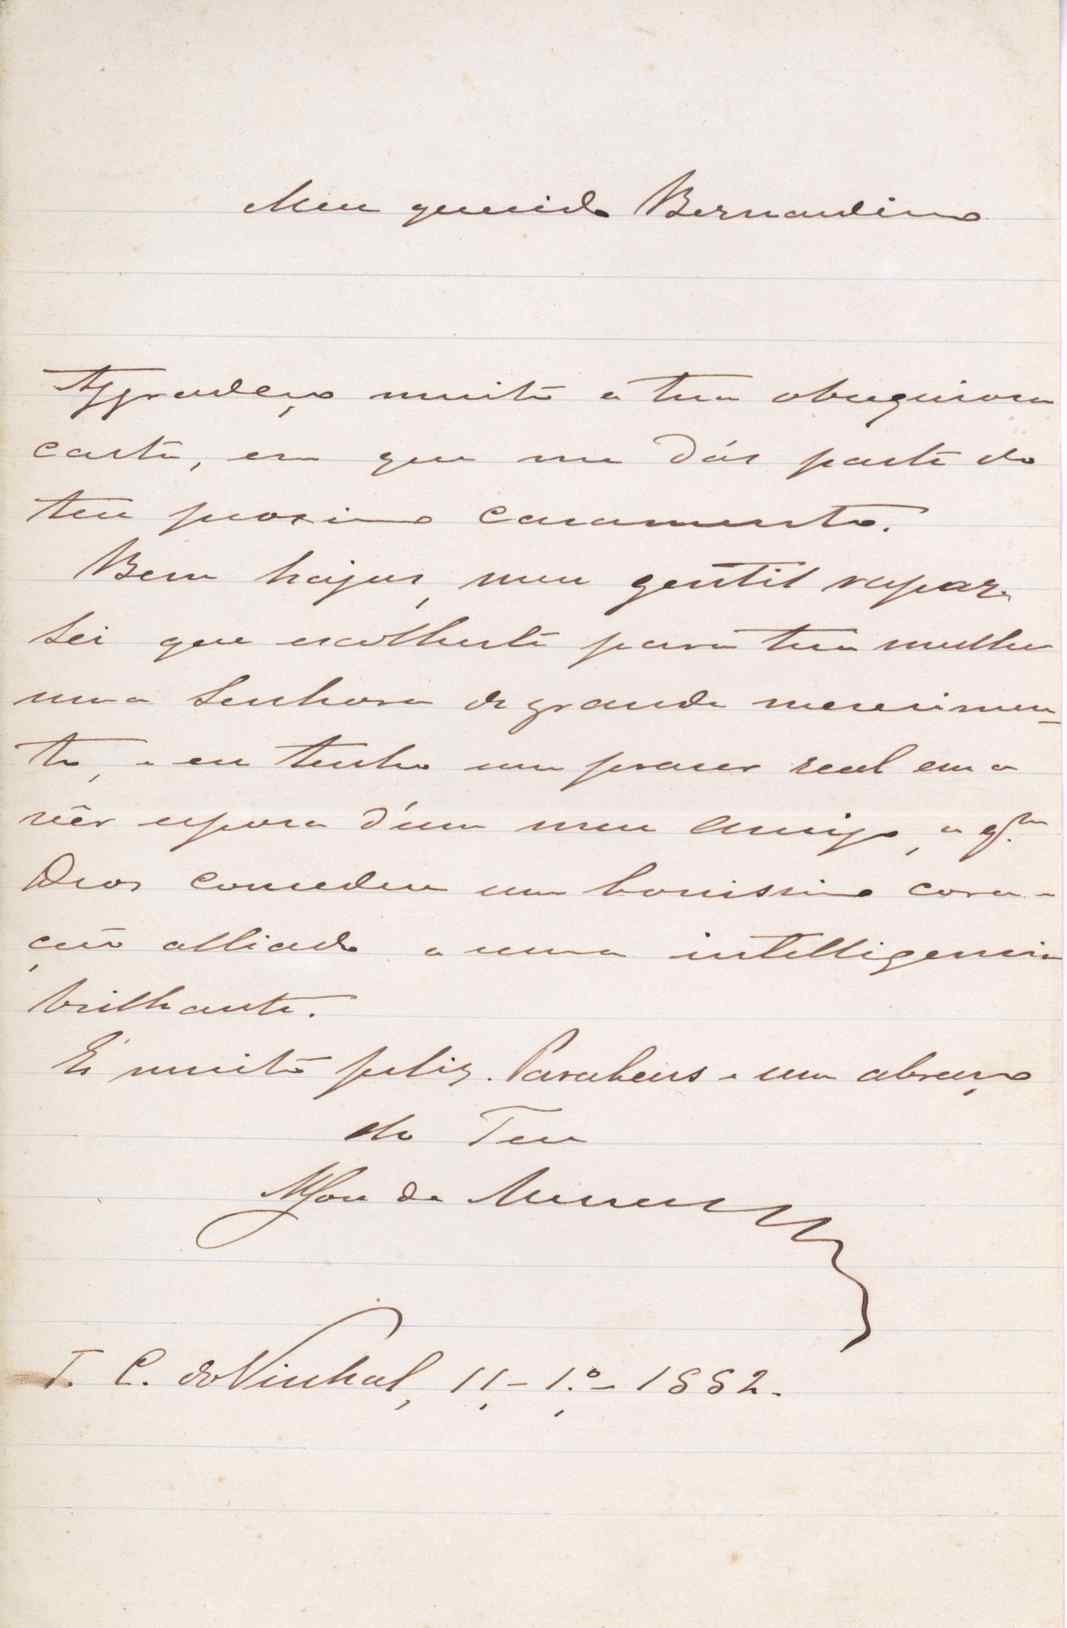 Meu querido Bernardino
Aggradeço muito a tua obsequiosa
carta, em que me dás parte do
teu proximo casamento.
Bem hajas, meu gentil rapaz.
Sei que escolheste para tua mulher
uma Senhora de grande merecimen-
to, e eu tenho um praser real em a
vêr esposa d'um meu amigo, a q.m
Deos concedeu um bonissimo cora-
ção alliado a uma intelligencia
brilhante.
És muito feliz. Parabens e um abraço
do Teu
de
T. C. do Vinhal, 11-1.º-1882.